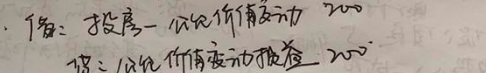 借：投房—公允价值变动 200
贷：公允价值变动损益 200